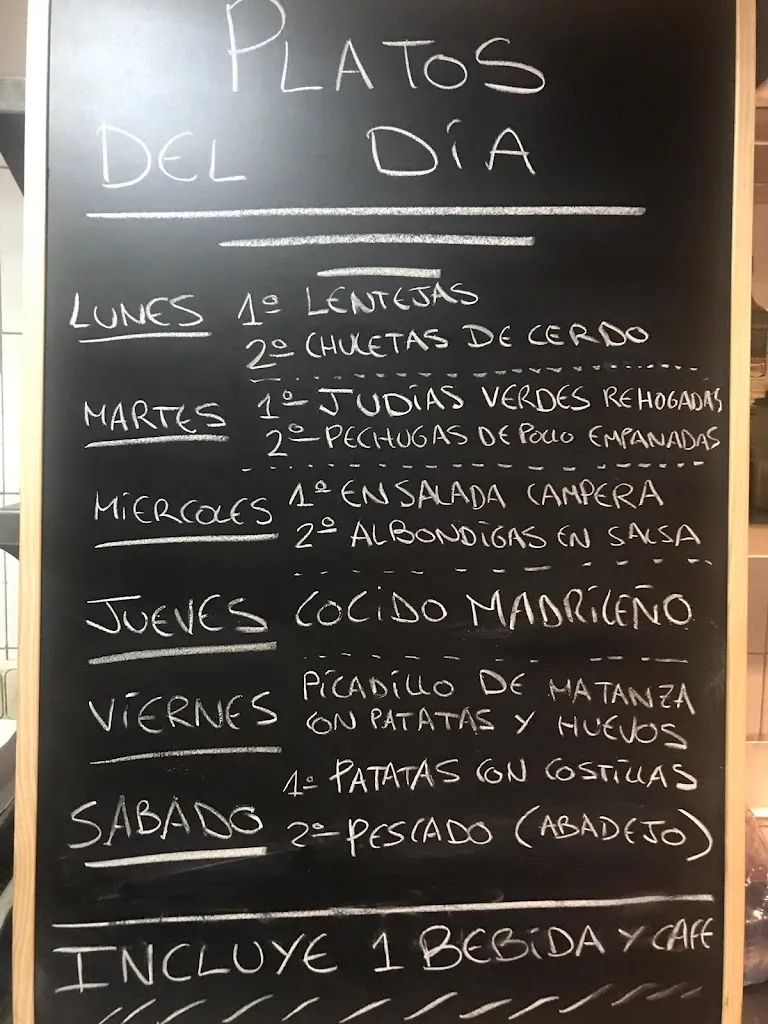 PLATOS
DEL DÍA
LUNES 1º LENTEJAS
2º CHULETAS DE CERDO
MARTES 1º JUDÍAS VERDES REHOGADAS
2º PECHUGAS DE POLLO EMPANADAS
MIERCOLES 1º ENSALADA CAMPERA
2º ALBONDIGAS EN SALSA
JUEVES COCIDO MADRILEÑO
VIERNES PICADILLO DE MATANZA
CON PATATAS Y HUEVOS
SABADO 1º PATATAS CON COSTILLAS
2º PESCADO (ABADEJO)
INCLUYE 1 BEBIDA Y CAFE